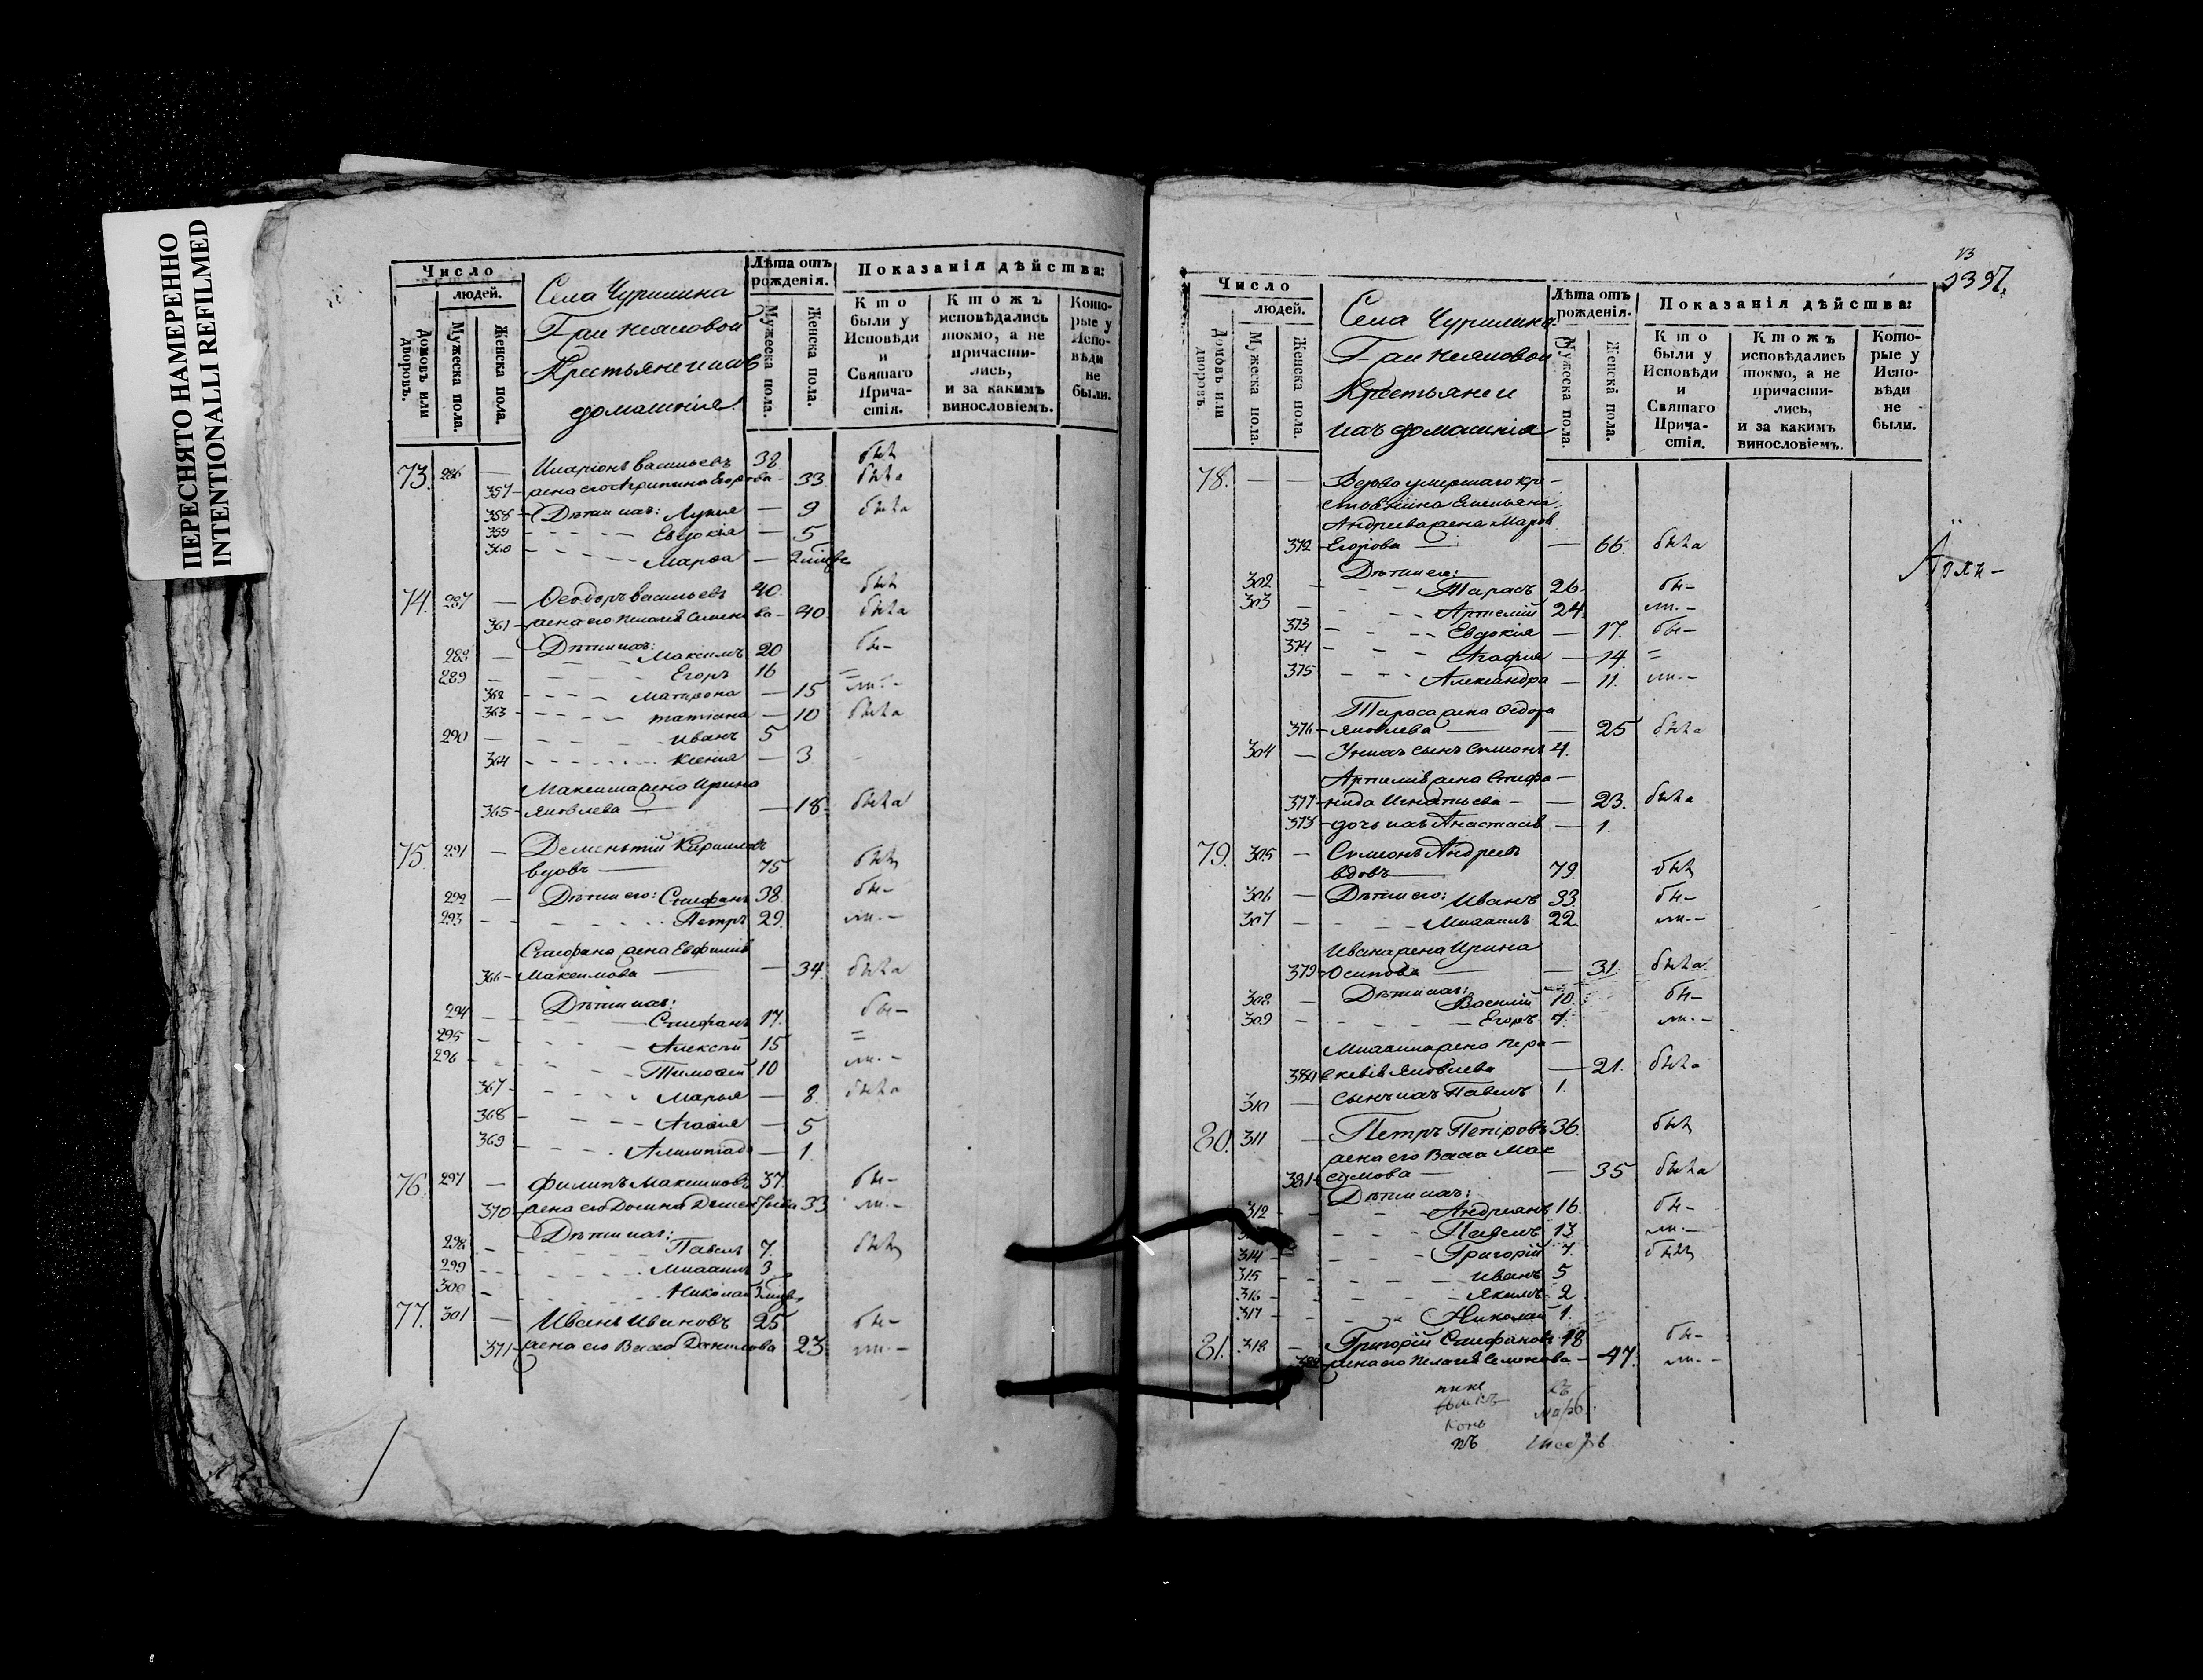 ПЕРЕСНЯТО НАМЕРЕННО
INTENTIONALLI REFILMED
Число
людей.
Домовъ или дворовъ.
Мужеска пола.
Женска пола.
Села Чурилина
Крестьяне и ихъ
домашнія
Лѣта отъ рожденія.
Мужеска пола.
Женска пола.
Показанія дѣйства:
Кто были у Исповѣди и Святаго Прича-стія.
Ктожъ исповѣдались токмо, а не причасти-лись, и за какимъ винословіемъ.
Кото-рые у Испо-вѣди не были.
73. 286 — Иларіонъ Васильевъ 38 былъ
357 — жена его Агрипина Егорова — 33 была
358 — Дѣти ихъ: Лукия — 9 была
359 — Евдокія — 5
360 — Марѳа — 2
74. 287 — Ѳеодоръ Васильевъ 40 былъ
361 — жена его Пелагія Семенова — 40 была
Дѣти ихъ:
288 — Максимъ 20 бы-
289 — Егоръ 16 =
362 — Матрона — 15 ли. —
363 — татіана — 10 была
290 — Иванъ 5
364 — Ксенія — 3
Максима жена Ирина
365 — Яковлева — 18 была
75. 291 — Дементій Кириловъ
вдовъ — 75 былъ
292 — Дѣти его: Стефанъ 38 бы-
293 — Петръ 29 ли. —
Стефана жена Евфимія
366 — Максимова — 34 была
Дѣти ихъ:
294 — Стефанъ 17 бы-
295 — Алексѣй 15 =
296 — Тимоѳей 10 ли. —
367 — Марья — 8 была
368 — Агаѳія — 5
369 — Алимпіада — 1
76. 297 — Филипъ Максимовъ 37 бы-
370 — жена его Домна Дементьева 33 ли. —
Дѣти ихъ:
298 — Павелъ 7 былъ
299 — Михаилъ 3
300 — Николай 3
77. 301 — Иванъ Ивановъ 25 бы-
371 — жена его Васса Данилова 23 ли. —
2397
Число
людей.
Домовъ или дворовъ
Мужеска пола.
Женска пола.
Села Чурилина
Крестьяне и
ихъ домашнія
Лѣта отъ рожденія.
Мужеска пола.
Женска пола.
Показанія дѣйства:
Кто были у Исповѣди и Святаго Прича-стія.
Ктожъ исповѣдались токмо, а не причасти-лись, и за какимъ винословіемъ.
Кото-рые у Испо-вѣди не были.
78. — — Вдова умершаго кре-
стьянина Емельяна
Андреева жена Марѳа
372 — Егорова — 66. была
Дѣти ея:
302 — Тарасъ 26 бы-
303 — Артемій 24 ли. —
373 — Евдокія — 17. бы-
374 — Агафія — 14 =
375 — Александра — 11. ли. —
Тараса жена Ѳедора
376 — Яковлева — 25 была
304 — У нихъ сынъ Симеонъ 4.
Артемія жена Стефа-
377 — нида Игнатьева — 23. была
378 — дочь ихъ Анастасія — 1.
79. 305 — Симеонъ Андреевъ
вдовъ — 79. былъ
306 — Дѣти его: Иванъ 33 бы-
307 — Михаилъ 22 ли. —
Ивана жена Ирина
379 — Осипова — 31. была
Дѣти ихъ:
308 — Василій 10. бы-
309 — Егоръ 7. ли. —
Михаила жена Пара-
380 скевія Яковлева — 21. была
310 — Сынъ ихъ Павелъ 1.
80. 311 — Петръ Петровъ 36. былъ
жена его Васса Мак
381 симова — 35 была
Дѣти ихъ:
312 — Андрианъ 16. бы-
Павелъ 13 ли. —
314 — Григорій 7. былъ
315 — Иванъ 5
316 — Якимъ 2
317 — Николай 1.
81. 318 — Григорій Стефановъ 48 бы-
382 жена его Пелагія Семенова — 47. ли. —